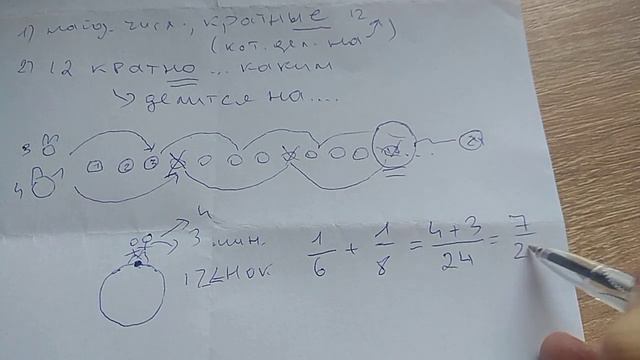 1) найд. числ., кратные 12
(кот. дел. на ↗)
2) 12 кратно ... каким
↘ делится на ....
3
4
4
3 мин.
12 ∠ НОК
1/6 + 1/8 = 4+3/24 = 7/2